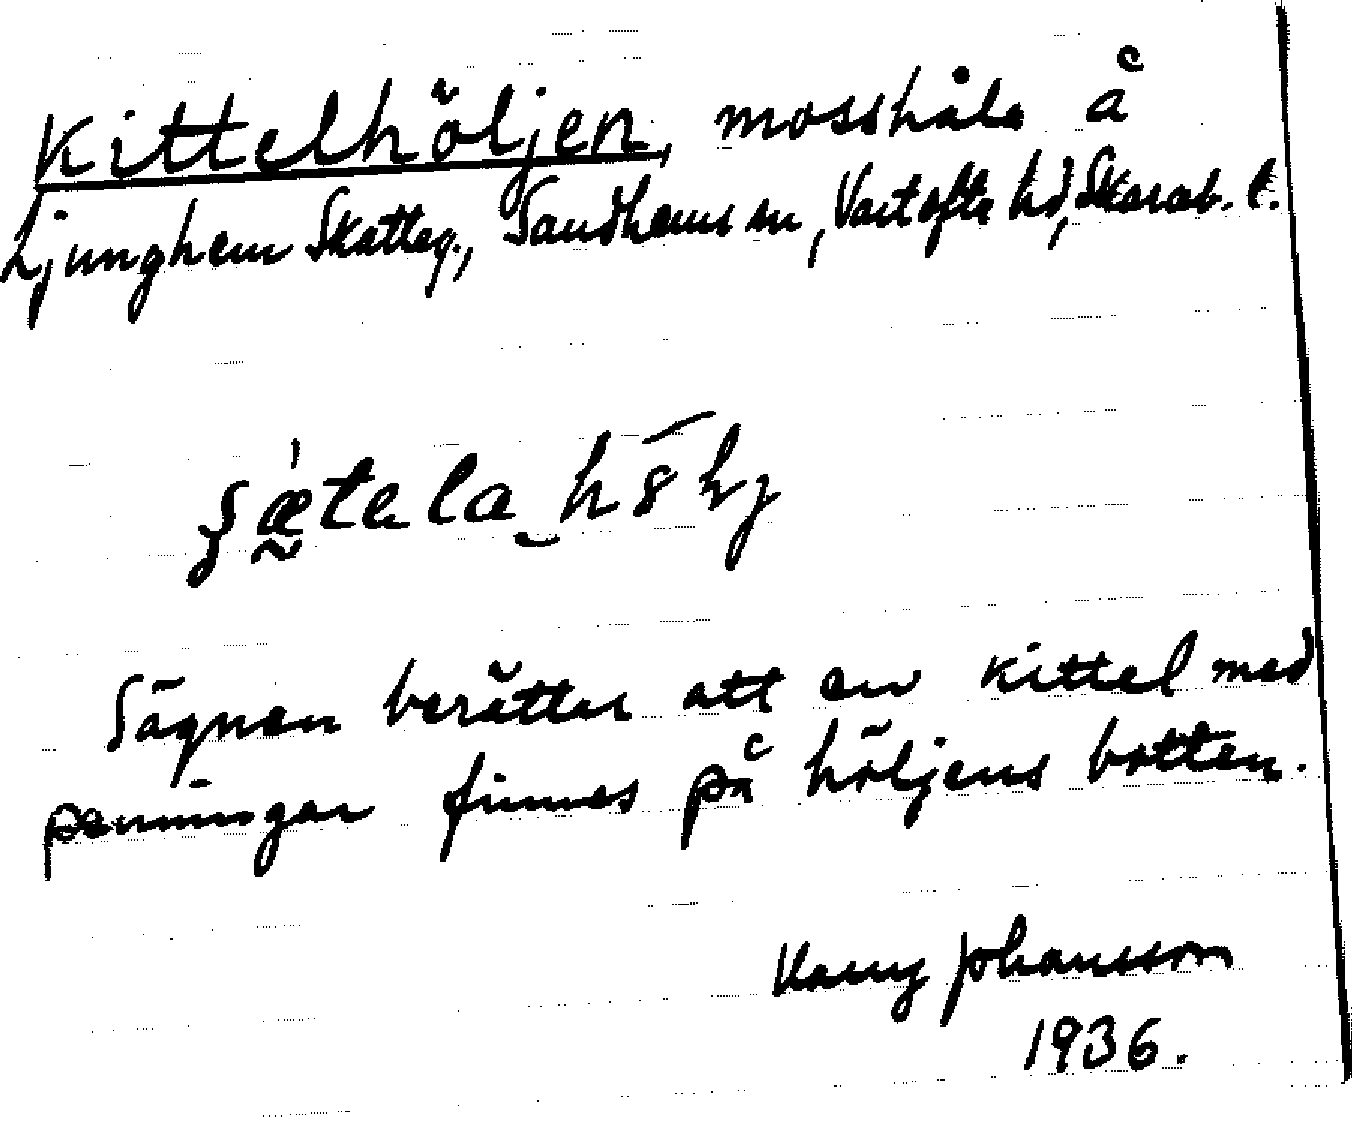 Kittelhöljen, mosshåla å
Ljunghem Skatteg., Sandhems sn, Vartofta hd, Skarab. l.
Sägnen berättar att en kittel med
penningar finnes på höljens botten.
Johansson
1936.